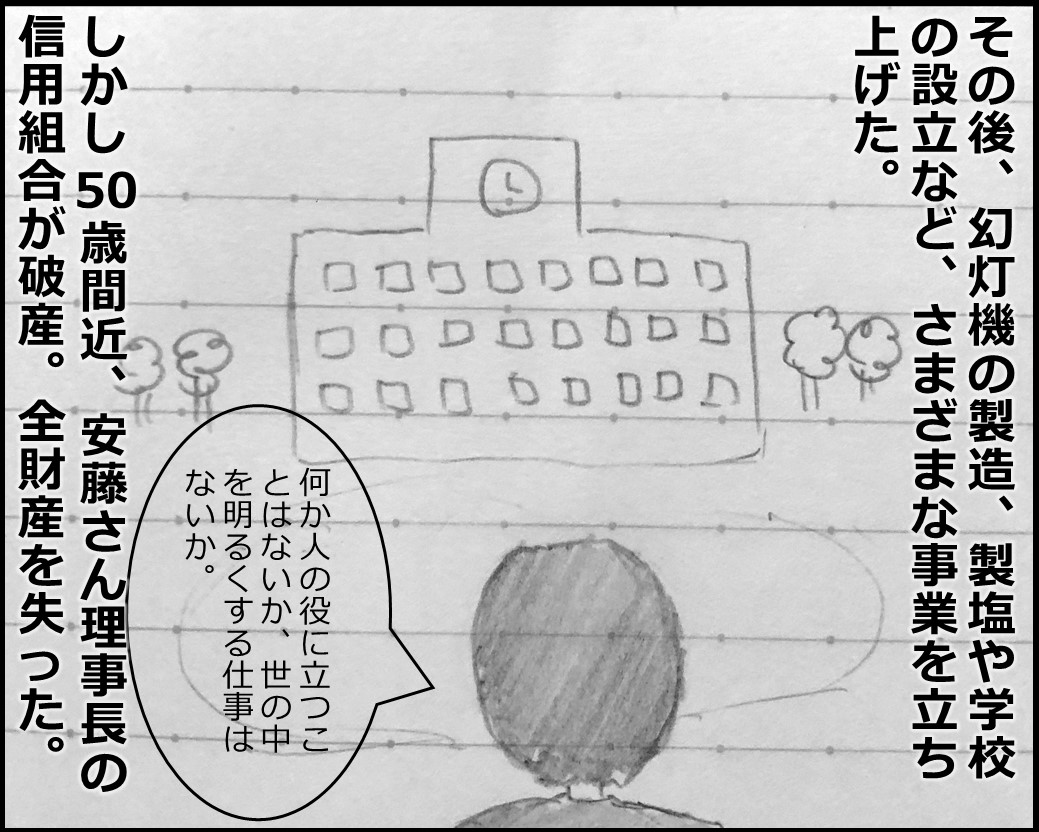 その後、幻灯機の製造、製塩や学校
の設立など、さまざまな事業を立ち
上げた。
何か人の役に立つこ
とはないか、世の中
を明るくする仕事は
ないか。
しかし50歳間近、安藤さん理事長の
信用組合が破産。全財産を失った。